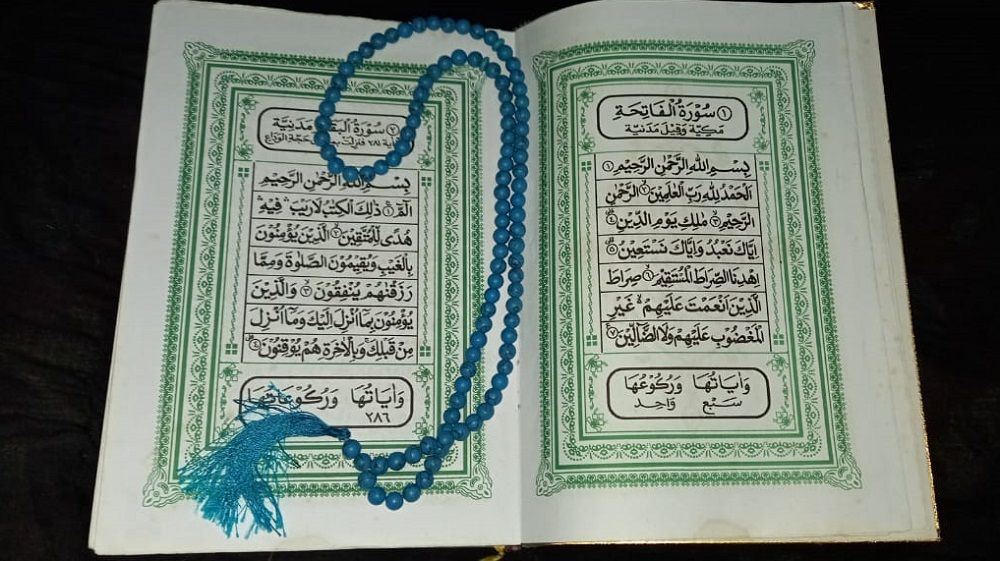 ١ سُوْرَةُ الْفَاتِحَةِ
مَكِيَّة وَقِيْلَ مَدَنيَّة
بِسْمِ اللهِ الرَّحْمٰنِ الرَّحِيْمِ ١
اَلْحَمْدُ لِلّٰهِ رَبِّ الْعٰلَمِيْنَ ٢ الرَّحْمٰنِ
الرَّحِيْمِ ٣ مٰلِكِ يَوْمِ الدِّيْنِ ٤
اِيَّاكَ نَعْبُدُ وَاِيَّاكَ نَسْتَعِيْنُ ٥
اِهْدِنَا الصِّرَاطَ الْمُسْتَقِيْمَ ٦ صِرَاطَ
الَّذِيْنَ اَنْعَمْتَ عَلَيْهِمْ غَيْرِ
الْمَغْضُوْبِ عَلَيْهِمْ وَلَا الضَّالِّيْنَ ٧
وَاٰيَاتُهَا وَرُكُوْعُهَا
سَبْع وَاحِد
٢ سُوْرَةُ مَدَنِيَّة
٢٨١ فنزلت حجة الوداع
بِسْمِ اللهِ الرَّحْمٰنِ الرَّحِيْمِ
الٓمّٓ ١ ذٰلِكَ الْكِتٰبُ لَا رَيْبَ فِيْهِ
هُدًى لِلْمُتَّقِيْنَ ٢ الَّذِيْنَ يُؤْمِنُوْنَ
بِالْغَيْبِ وَيُقِيْمُوْنَ الصَّلٰوةَ وَمِمَّا
رَزَقْنٰهُمْ يُنْفِقُوْنَ ٣ وَالَّذِيْنَ
يُؤْمِنُوْنَ بِمَا اُنْزِلَ اِلَيْكَ وَمَا اُنْزِلَ
مِنْ قَبْلِكَ وَبِالْاٰخِرَةِ هُمْ يُوْقِنُوْنَ ٤
وَاٰيَاتُهَا وَرُكُوْعَاتُهَا
٢٨٦